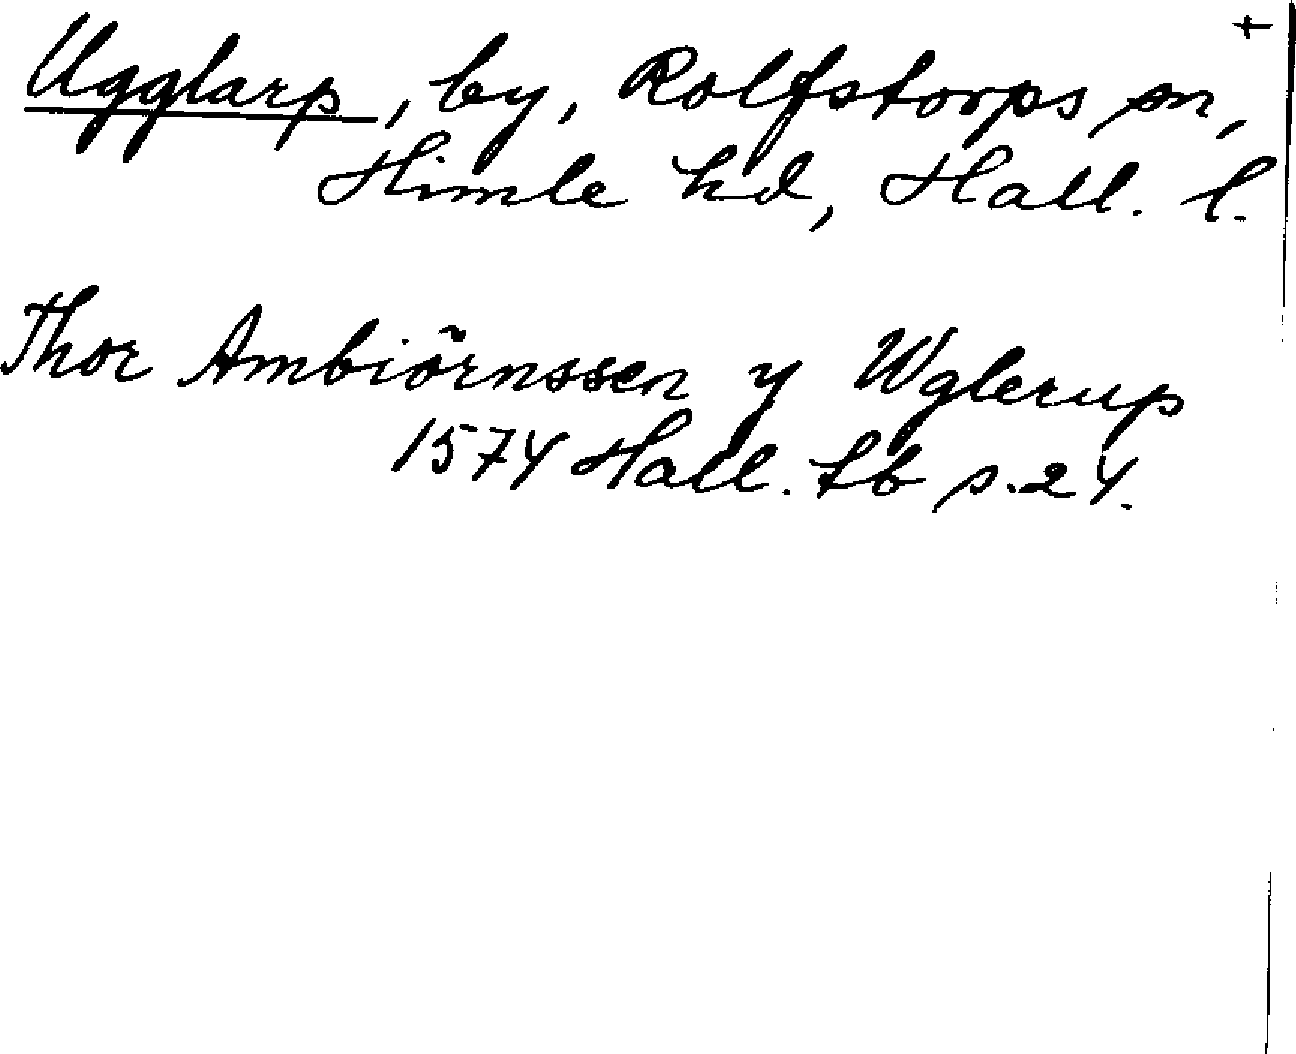 †
Ugglarp, by, Rolfstorps sn,
Himle hd, Hall. l.
Thor Ambiörnssen y Wglerup
1574 Hall. tb s. 24.